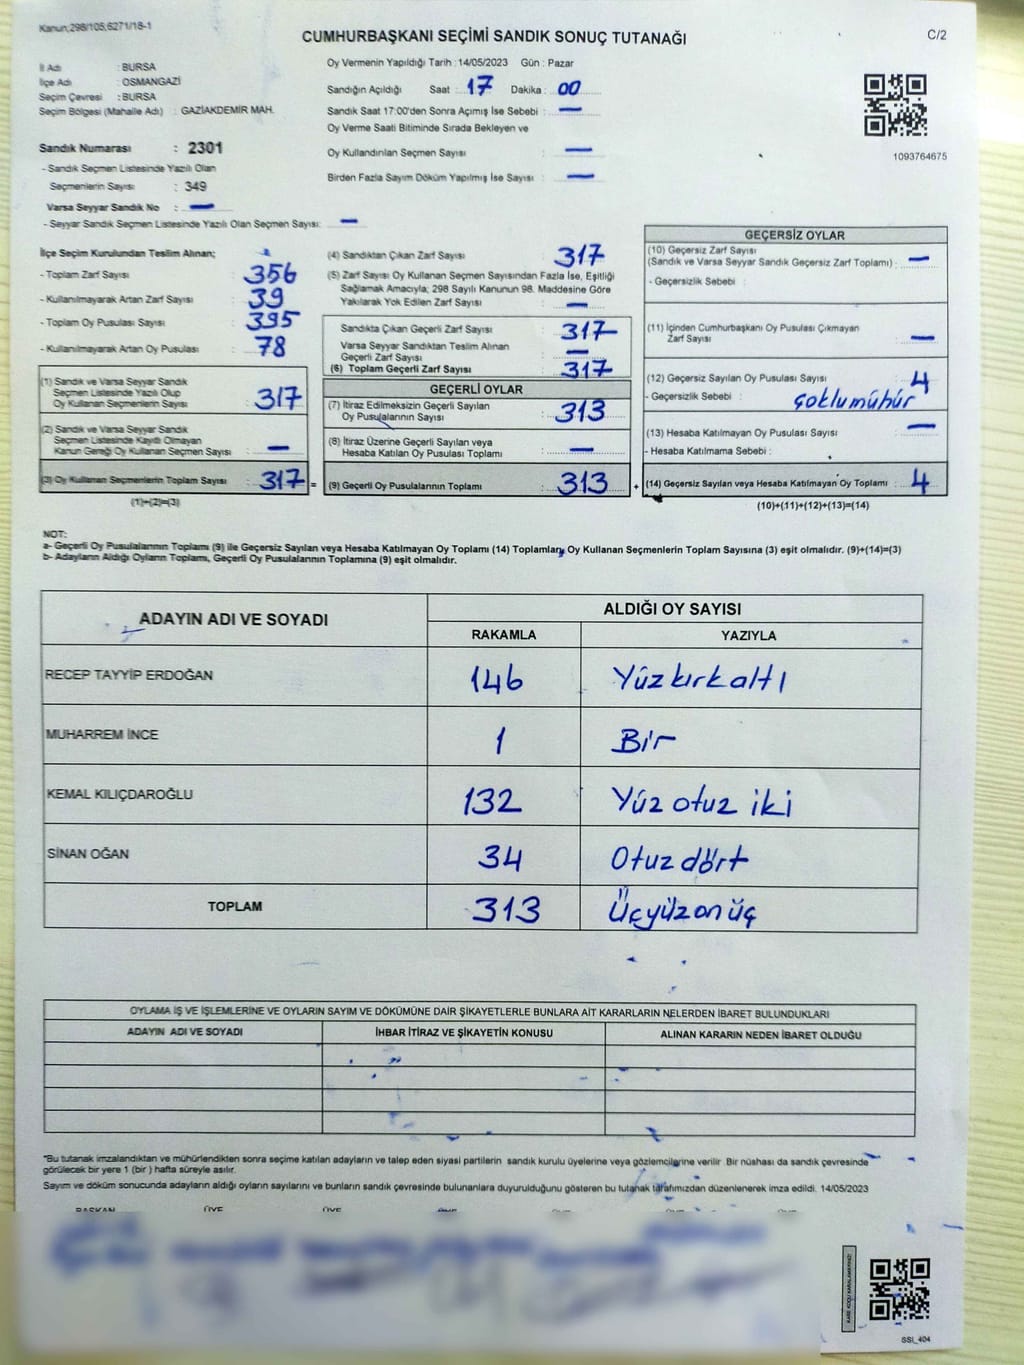 Kanun,298/105,6271/18-1
CUMHURBAŞKANI SEÇİMİ SANDIK SONUÇ TUTANAĞI
C/2
İl Adı : BURSA
İlçe Adı : OSMANGAZİ
Seçim Çevresi : BURSA
Seçim Bölgesi (Mahalle Adı) : GAZİAKDEMİR MAH.
Sandık Numarası : 2301
- Sandık Seçmen Listesinde Yazılı Olan
Seçmenlerin Sayısı : 349
Varsa Seyyar Sandık No : —
- Seyyar Sandık Seçmen Listesinde Yazılı Olan Seçmen Sayısı: —
Oy Vermenin Yapıldığı Tarih : 14/05/2023 Gün : Pazar
Sandığın Açıldığı Saat : 17 Dakika : 00
Sandık Saat 17:00'den Sonra Açımış İse Sebebi : —
Oy Verme Saati Bitiminde Sırada Bekleyen ve
Oy Kullandırılan Seçmen Sayısı : —
Birden Fazla Sayım Döküm Yapılmış İse Sayısı : —
1093764675
İlçe Seçim Kurulundan Teslim Alınan;
- Toplam Zarf Sayısı : 356
- Kullanılmayarak Artan Zarf Sayısı : 39
- Toplam Oy Pusulası Sayısı : 395
- Kullanılmayarak Artan Oy Pusulası : 78
(1) Sandık ve Varsa Seyyar Sandık
Seçmen Listesinde Yazılı Olup
Oy Kullanan Seçmenlerin Sayısı : 317
(2) Sandık ve Varsa Seyyar Sandık
Seçmen Listesinde Kayıtlı Olmayan
Kanun Gereği Oy Kullanan Seçmen Sayısı : —
(3) Oy Kullanan Seçmenlerin Toplam Sayısı : 317 =
(1)+(2)=(3)
(4) Sandıktan Çıkan Zarf Sayısı : 317
(5) Zarf Sayısı Oy Kullanan Seçmen Sayısından Fazla İse, Eşitliği
Sağlamak Amacıyla; 298 Sayılı Kanunun 98. Maddesine Göre
Yakılarak Yok Edilen Zarf Sayısı : —
Sandıkta Çıkan Geçerli Zarf Sayısı : 317
Varsa Seyyar Sandıktan Teslim Alınan
Geçerli Zarf Sayısı : —
(6) Toplam Geçerli Zarf Sayısı : 317
GEÇERLİ OYLAR
(7) İtiraz Edilmeksizin Geçerli Sayılan
Oy Pusulalarının Sayısı : 313
(8) İtiraz Üzerine Geçerli Sayılan veya
Hesaba Katılan Oy Pusulası Toplamı : —
(9) Geçerli Oy Pusulalarının Toplamı : 313 +
GEÇERSİZ OYLAR
(10) Geçersiz Zarf Sayısı
(Sandık ve Varsa Seyyar Sandık Geçersiz Zarf Toplamı) : —
- Geçersizlik Sebebi :
(11) İçinden Cumhurbaşkanı Oy Pusulası Çıkmayan
Zarf Sayısı : —
(12) Geçersiz Sayılan Oy Pusulası Sayısı : 4
- Geçersizlik Sebebi : çoklumühür
(13) Hesaba Katılmayan Oy Pusulası Sayısı : —
- Hesaba Katılmama Sebebi :
(14) Geçersiz Sayılan veya Hesaba Katılmayan Oy Toplamı : 4
(10)+(11)+(12)+(13)=(14)
NOT:
a- Geçerli Oy Pusulalarının Toplamı (9) ile Geçersiz Sayılan veya Hesaba Katılmayan Oy Toplamı (14) Toplamları, Oy Kullanan Seçmenlerin Toplam Sayısına (3) eşit olmalıdır. (9)+(14)=(3)
b- Adayların Aldığı Oyların Toplamı, Geçerli Oy Pusulalarının Toplamına (9) eşit olmalıdır.
ADAYIN ADI VE SOYADI ALDIĞI OY SAYISI
RAKAMLA YAZIYLA
RECEP TAYYİP ERDOĞAN 146 Yüzkırkaltı
MUHARREM İNCE 1 Bir
KEMAL KILIÇDAROĞLU 132 Yüz otuz iki
SİNAN OĞAN 34 Otuz dört
TOPLAM 313 Üçyüzonüç
OYLAMA İŞ VE İŞLEMLERİNE VE OYLARIN SAYIM VE DÖKÜMÜNE DAİR ŞİKAYETLERLE BUNLARA AİT KARARLARIN NELERDEN İBARET BULUNDUKLARI
ADAYIN ADI VE SOYADI İHBAR İTİRAZ VE ŞİKAYETİN KONUSU ALINAN KARARIN NEDEN İBARET OLDUĞU
*Bu tutanak imzalandıktan ve mühürlendikten sonra seçime katılan adayların ve talep eden siyasi partilerin sandık kurulu üyelerine veya gözlemcilerine verilir Bir nüshası da sandık çevresinde
görülecek bir yere 1 (bir ) hafta süreyle asılır.
Sayım ve döküm sonucunda adayların aldığı oyların sayılarını ve bunların sandık çevresinde bulunanlara duyurulduğunu gösteren bu tutanak tarafımızdan düzenlenerek imza edildi. 14/05/2023
BAŞKAN ÜYE ÜYE
SSİ_404